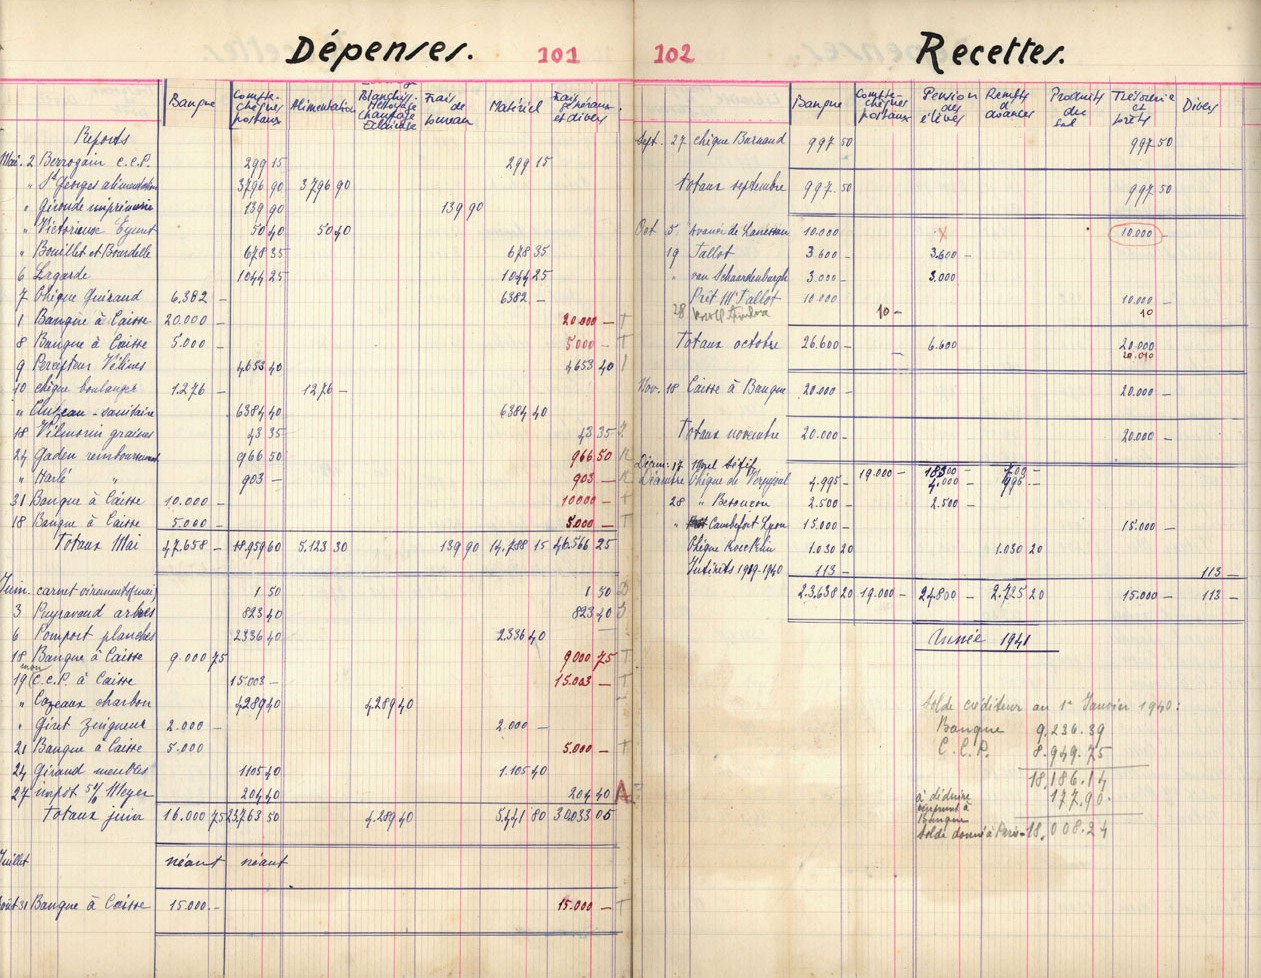 Dépenses. 101
Banque Compte-chèques postaux Alimentation Blanchis. Nettoyage Chauffage Eclairage Frais de bureau Matériel Frais généraux et divers.
Reports
Mai. 2 Berrogain C.C.P. 299 15 299 15
" St Georges alimentation 3796 90 3796 90
" Gironde imprimerie 139 90 139 90
" Victorieuse Eymet 50 40 50 40
" Bouillet et Bourdelle 678 35 678 35
6 Lagarde 1044 25 1044 25
7 Chèque Guiraud 6.382 – 6382 –
1 Banque à Caisse 20.000 – 20.000 – T
8 Banque à Caisse 5.000 – 5000 – T
9 Percepteur Vélines 4653 40 4653 40 I
10 chèque boulanger 1.276 – 1276 –
" Cluzeau - sanitaire 6384 40 6384 40
18 Vilmorin graines 43 35 43 35 J
24 Gaden remboursement 966 50 966 50 R
" Harlé " 903 – 903 – R
31 Banque à Caisse 10.000 – 10000 – T
18 Banque à Caisse 5.000 – 5000 – T
Totaux Mai 47.658 – 18.959 60 5.123 30 139 90 14.788 15 46.566 25
Juin. carnet virements (mai) 1 50 1 50 D
3 Puyravaud arbres 823 40 823 40 J
6 Pomport planches 2336 40 2336 40 –
18 Banque à Caisse 9.000 75 9000 75 T
19 C.C.P. à Caisse 15.003 – 15.003 – T
" Cazeaux charbon 4289 40 4.289 40
" Giret zingueur 2.000 – 2.000 –
21 Banque à Caisse 5.000 5.000 – T
24 Girand meubles 1105 40 1.105 40
27 impôt s/ Meyer 204 40 204 40 A
Totaux juin 16.000 75 23.763 50 4.289 40 5.441 80 30.033 05
Juillet néant néant
Août 31 Banque à Caisse 15.000.- 15.000 – T
102 Recettes.
Banque Compte-chèques postaux Pension des élèves Rembts d'avances Produits du sol Trésorerie et prêts Divers
Sept. 27 chèque Barnaud 997 50 997 50
Totaux septembre 997. 50 997 50
Oct 5 Avouée de Lanessan 10.000 X 10.000
19 Tallot 3.600 – 3.600 –
" van Schaardenburgh 3.000 – 3.000
Prêt Mr Tallot 10.000 10.000 –
28 10 – 10
Totaux octobre 26.600 – 6.600 20.000
– 20.010
Nov. 18 Caisse à Banque 20.000 – 20.000 –
Totaux novembre 20.000 – 20.000 –
Décem: 17 Morel Sétif 19.000 – 18300 – 700 –
Décembre Chèque de Verjyval 4.995 – 4.000 – 995 –
28 " Besançon 2.500 – 2.500 –
" Cambefort Lyon 15.000 – 15.000 –
Chèque Koecklin 1.030 20 1.030 20
Intérêts 1939-1940 113 – 113 –
23.638 20 19.000 – 24.800 – 2.725 20 15.000 – 113 –
Année 1941
Solde créditeur au 1er Janvier 1940:
Banque 9.236.39
C.C.P. 8.949.75
18.186.14
à déduire emprunt à Banque 177.90.
Solde donné à Paris - 18.008.24